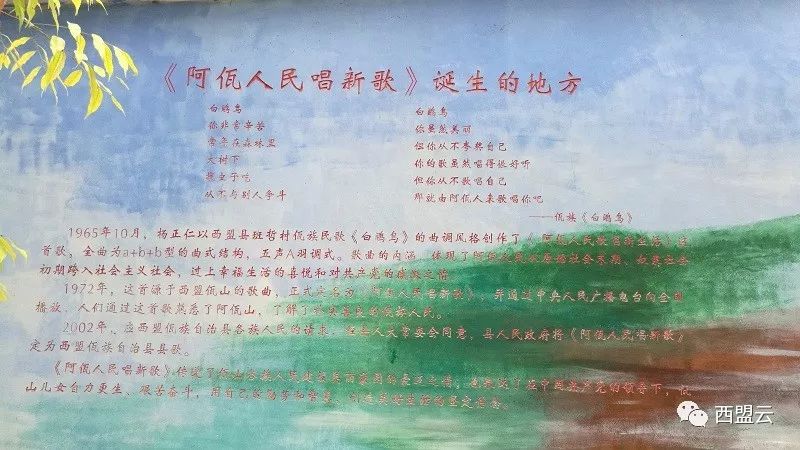 《阿佤人民唱新歌》诞生的地方
白鹇鸟
你非常辛苦
常常在森林里
大树下
找虫子吃
从不与别人争斗
白鹇鸟
你虽然美丽
但你从不夸奖自己
你的歌虽然唱得很好听
但你从不歌唱自己
那就由阿佤人来歌唱你吧
——佤族《白鹇鸟》
1965年10月，杨正仁以西盟县班哲村佤族民歌《白鹇鸟》的曲调风格创作了《阿佤人民歌唱新生活》这
首歌，全曲为a+b+b型的曲式结构，五声A羽调式。歌曲的内涵，体现了阿佤人民从原始社会末期、奴隶社会
初期跨入社会主义社会，过上幸福生活的喜悦和对共产党的感激之情。
1972年，这首源于西盟佤山的歌曲，正式定名为《阿佤人民唱新歌》，并通过中央人民广播电台向全国
播放，人们通过这首歌熟悉了阿佤山，了解了的佤族人民。
2002年、应西盟佤族自治县各族人民的请求，经县人大常委会同意，县人民政府将《阿佤人民唱新歌》
定为西盟佤族自治县县歌。
《阿佤人民唱新歌》传佤山各族人民的之情，在中国共产党的领导下，佤
山儿女自力更生、艰苦奋斗，用自己的勤劳和智慧，创造美好生活的坚定信念。
西盟云